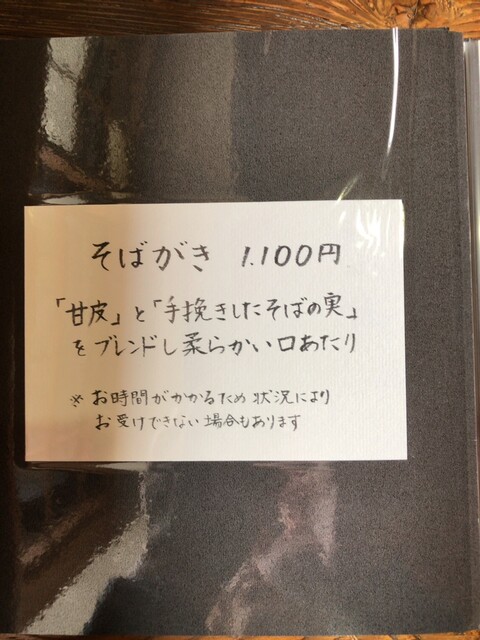 そばがき 1.100円
「甘皮」と「手挽きしたそばの実」
をブレンドし柔らかい口あたり
※お時間がかかるため状況により
お受けできない場合もあります